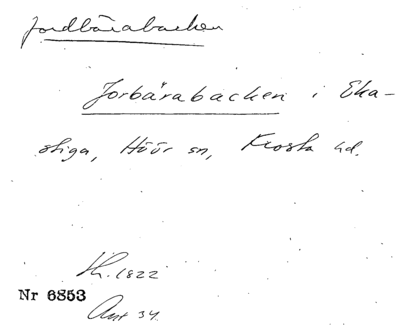 Jordbärabacken
Jorbärabacken i Eka-
stiga, Höör sn, Frosta hd.
Th. 1822
Nr 6853
Ant 34